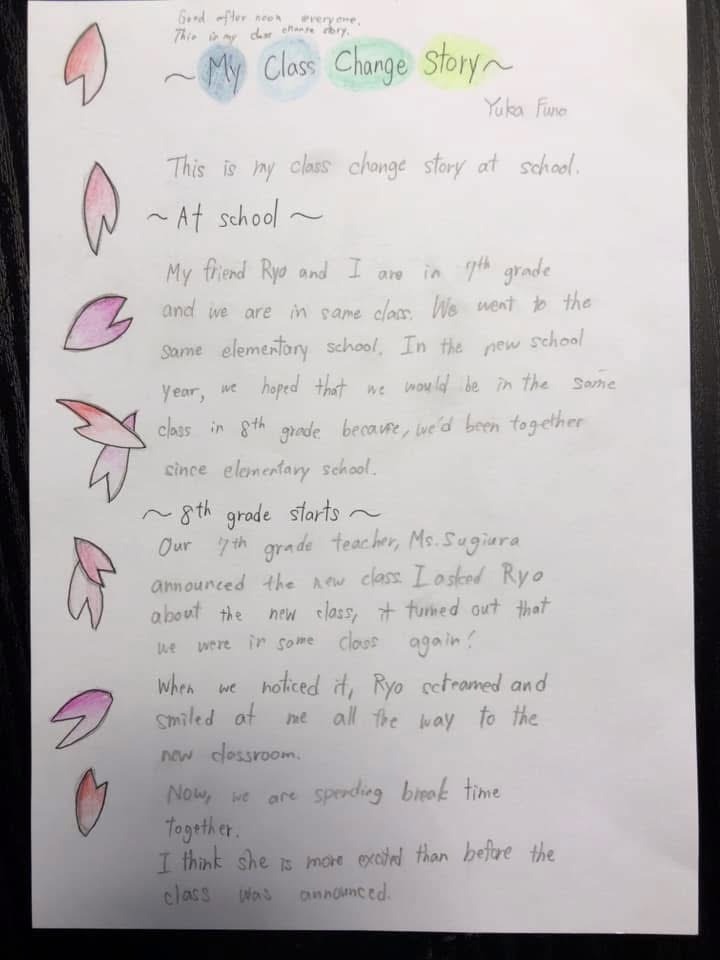 Good after noon everyone.
This is my class change story.
~ My Class Change Story ~
Yuka Funo
This is my class change story at school.
~ At school ~
My friend Ryo and I are in 7th grade
and we are in same class. We went to the
same elementary school. In the new school
year, we hoped that we would be in the same
class in 8th grade because, we'd been together
since elementary school.
~ 8th grade starts ~
Our 7th grade teacher, Ms. Sugiura
announced the new class. I asked Ryo
about the new class, it turned out that
we were in same class again!
When we noticed it, Ryo screamed and
smiled at me all the way to the
new classroom.
Now, we are spending break time
together.
I think she is more excited than before the
class was announced.